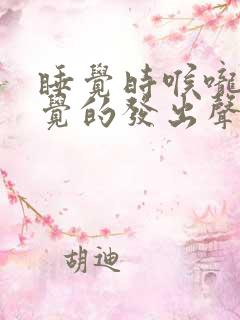 睡覺時喉嚨
覺的發出聲
胡迪